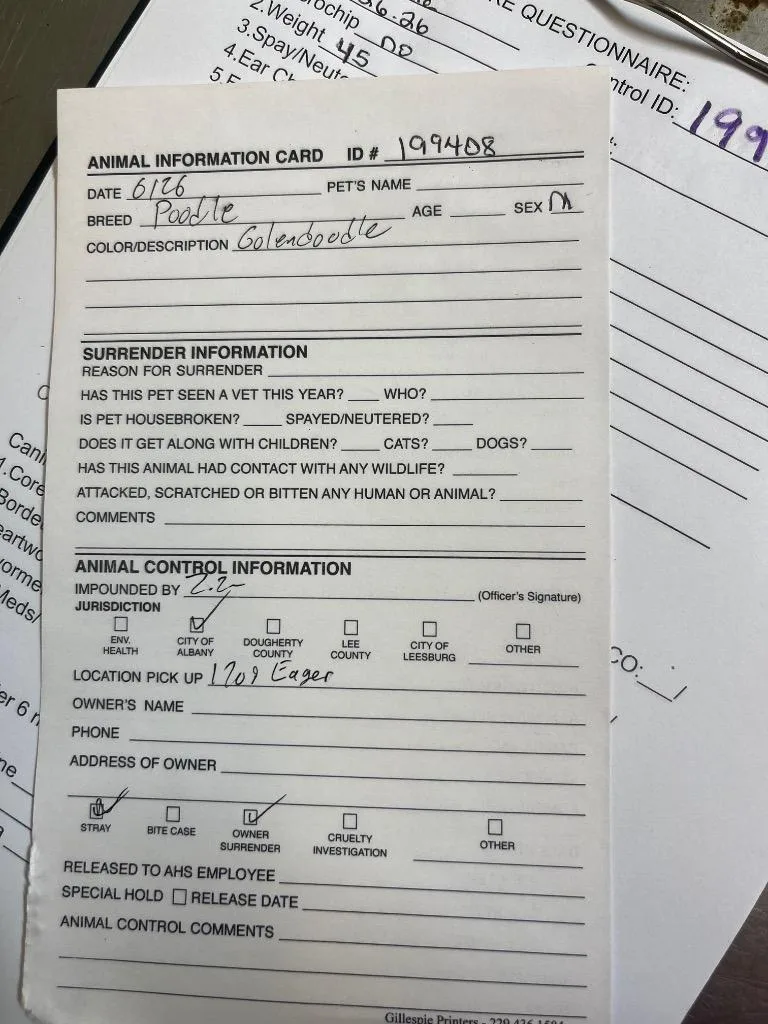 6.26
RE QUESTIONNAIRE:
ochip no
2.Weight 45
3.Spay/Neute
4.Ear Ch
5.E
ntrol ID: 199
ANIMAL INFORMATION CARD ID # 199408
DATE 6/26 PET'S NAME
BREED Poodle AGE SEX M
COLOR/DESCRIPTION Golendoodle
SURRENDER INFORMATION
REASON FOR SURRENDER
HAS THIS PET SEEN A VET THIS YEAR? WHO?
IS PET HOUSEBROKEN? SPAYED/NEUTERED?
DOES IT GET ALONG WITH CHILDREN? CATS? DOGS?
HAS THIS ANIMAL HAD CONTACT WITH ANY WILDLIFE?
ATTACKED, SCRATCHED OR BITTEN ANY HUMAN OR ANIMAL?
COMMENTS
ANIMAL CONTROL INFORMATION
IMPOUNDED BY (Officer's Signature)
JURISDICTION
ENV. HEALTH CITY OF ALBANY DOUGHERTY COUNTY LEE COUNTY CITY OF LEESBURG OTHER
LOCATION PICK UP 1709 Eager
OWNER'S NAME
PHONE
ADDRESS OF OWNER
STRAY BITE CASE OWNER SURRENDER CRUELTY INVESTIGATION OTHER
RELEASED TO AHS EMPLOYEE
SPECIAL HOLD RELEASE DATE
ANIMAL CONTROL COMMENTS
Gillespie Printers - 229
Cani
1.Core
Borde
eartwo
orme
Meds/
er 6 m
CO: